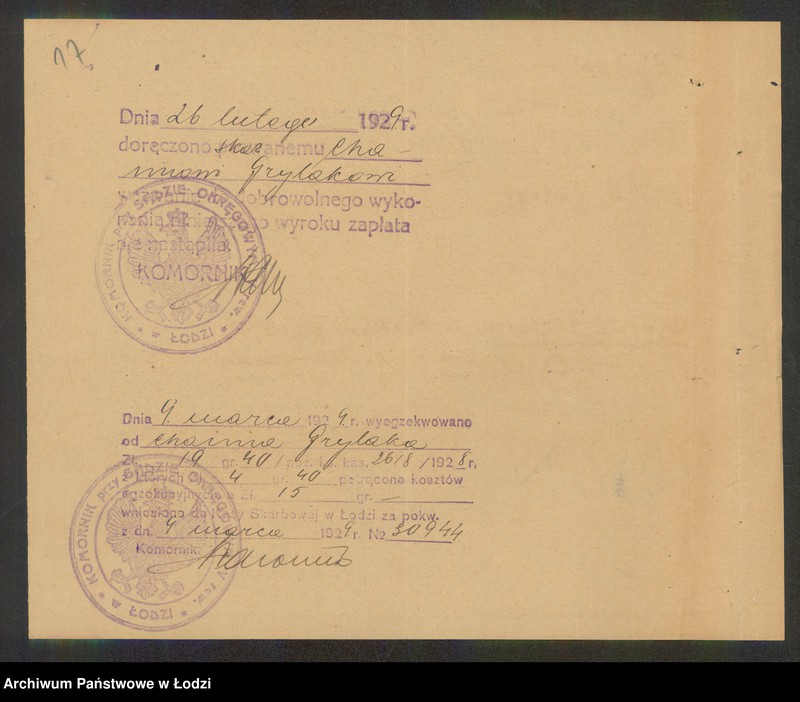 17.
Dnia 26 lutego 1929 r.
doręczono skazanemu Cha-
imowi Grylakowi
dobrowolnego wyko-
nania wyroku zapłata
nie nastąpiła.
KOMORNIK
KOMORNIK przy SĄDZIE OKRĘGOWYM rew. * w ŁODZI *
Dnia 9 marca 1929. r. wyegzekwowano
od Chaima Grylaka
Zł. 19 gr. 40 / poz. ks. kas. 2618 / 1928 r.
z których 4 gr. 40 potrącono kosztów
egzekucyjnych a Zł. 15 gr. –
wniesiono do Kasy Skarbowej w Łodzi za pokw.
z dn. 9 marca 1929 r. № 30944
Komornik:
KOMORNIK przy SĄDZIE OKRĘGOWYM rew. * w ŁODZI *
Archiwum Państwowe w Łodzi